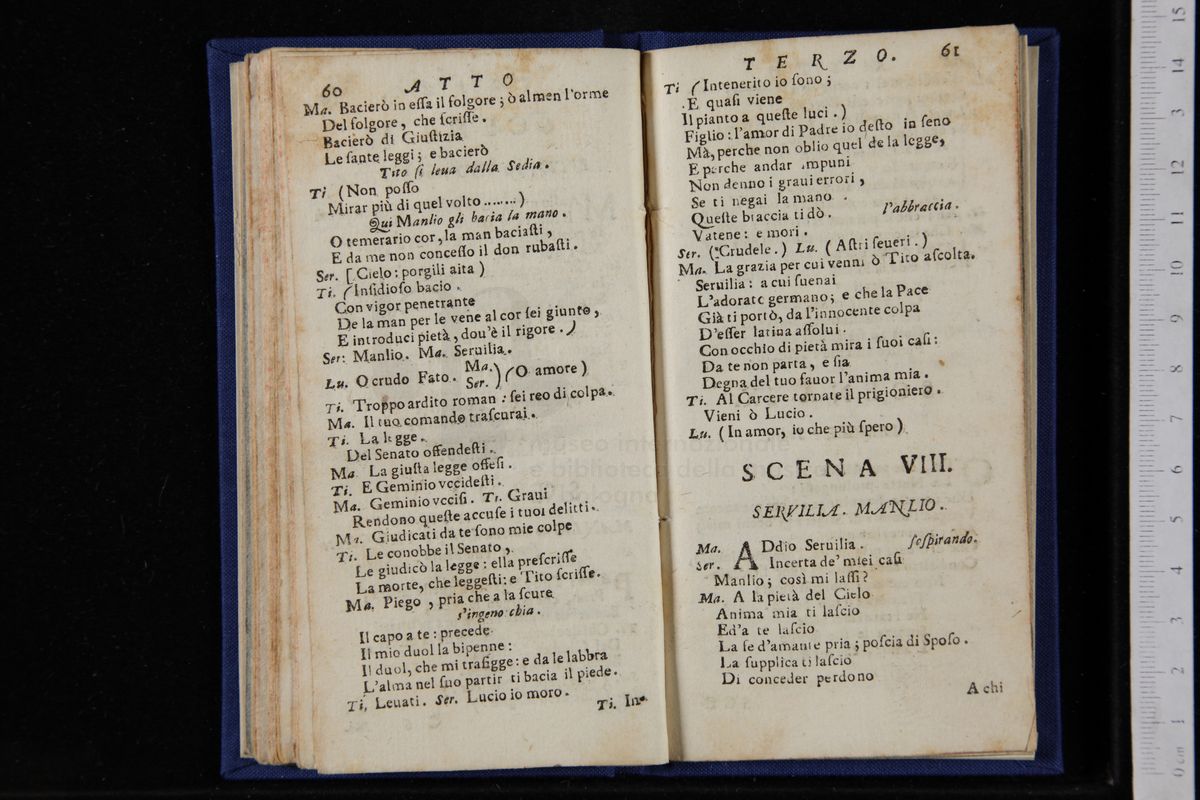 60 ATTO
Ma. Bacierò in eſſa il folgore; ò almen l'orme
Del folgore, che ſcriſſe.
Bacierò di Giuſtizia
Le ſante leggi; e bacierò
Tito ſi leua dalla Sedia.
Ti (Non poſſo
Mirar più di quel volto........)
Qui Manlio gli bacia la mano.
O temerario cor, la man baciaſti,
E da me non conceſſo il don rubaſti.
Ser. [Cielo: porgili aita)
Ti. (Inſidioſo bacio.
Con vigor penetrante
De la man per le vene al cor ſei giunto,
E introduci pietà, dou'è il rigore.)
Ser: Manlio. Ma. Seruilia.
Lu. O crudo Fato. Ma. Ser. ) (O amore)
Ti. Troppo ardito roman: ſei reo di colpa.
Ma. Il tuo comando traſcurai.
Ti. La legge.
Del Senato offendeſti.
Ma La giuſta legge offeſi.
Ti. E Geminio vccideſti.
Ma. Geminio vcciſi. Ti. Graui
Rendono queſte accuſe i tuoi delitti.
Ma. Giudicati da te ſono mie colpe
Ti. Le conobbe il Senato,
Le giudicò la legge: ella preſcriſſe
La morte, che leggeſti: e Tito ſcriſſe.
Ma. Piego, pria che a la ſcure
s'ingenochia.
Il capo a te: precede
Il mio duol la bipenne:
Il duol, che mi trafigge: e da le labbra
L'alma nel ſuo partir ti bacia il piede.
Ti. Leuati. Ser. Lucio io moro.
Ti. In-
TERZO. 61
Ti (Intenerito io ſono;
E quaſi viene
Il pianto a queſte luci.)
Figlio: l'amor di Padre io deſto in ſeno
Mà, perche non oblio quel de la legge,
E perche andar impuni
Non denno i graui errori,
Se ti negai la mano.
Queſte braccia ti dò. l'abbraccia.
Vatene: e mori.
Ser. (Crudele.) Lu. (Aſtri ſeueri.)
Ma. La grazia per cui venni ò Tito aſcolta.
Seruilia: a cui ſuenai
L'adorate germano; e che la Pace
Già ti portò, da l'innocente colpa
D'eſſer latina aſſolui.
Con occhio di pietà mira i ſuoi caſi:
Da te non parta, e ſia
Degna del tuo fauor l'anima mia.
Ti. Al Carcere tornate il prigioniero.
Vieni ò Lucio.
Lu. (In amor, io che più ſpero)
SCENA VIII.
SERVILIA. MANLIO.
Ma. ADdio Seruilia. ſoſpirando.
Ser. Incerta de' miei caſi
Manlio; così mi laſſi?
Ma. A la pietà del Cielo
Anima mia ti laſcio
Ed'a te laſcio
La fe d'amante pria; poſcia di Spoſo.
La ſupplica ti laſcio
Di conceder perdono
A chi
museo internazionale
e biblioteca della